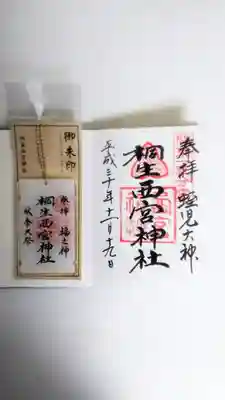 奉拝 蛭児大神
桐生西宮神社
平成三十年十一月十九日
御朱印
奉拝 福之神
桐生西宮神社
秋季大祭